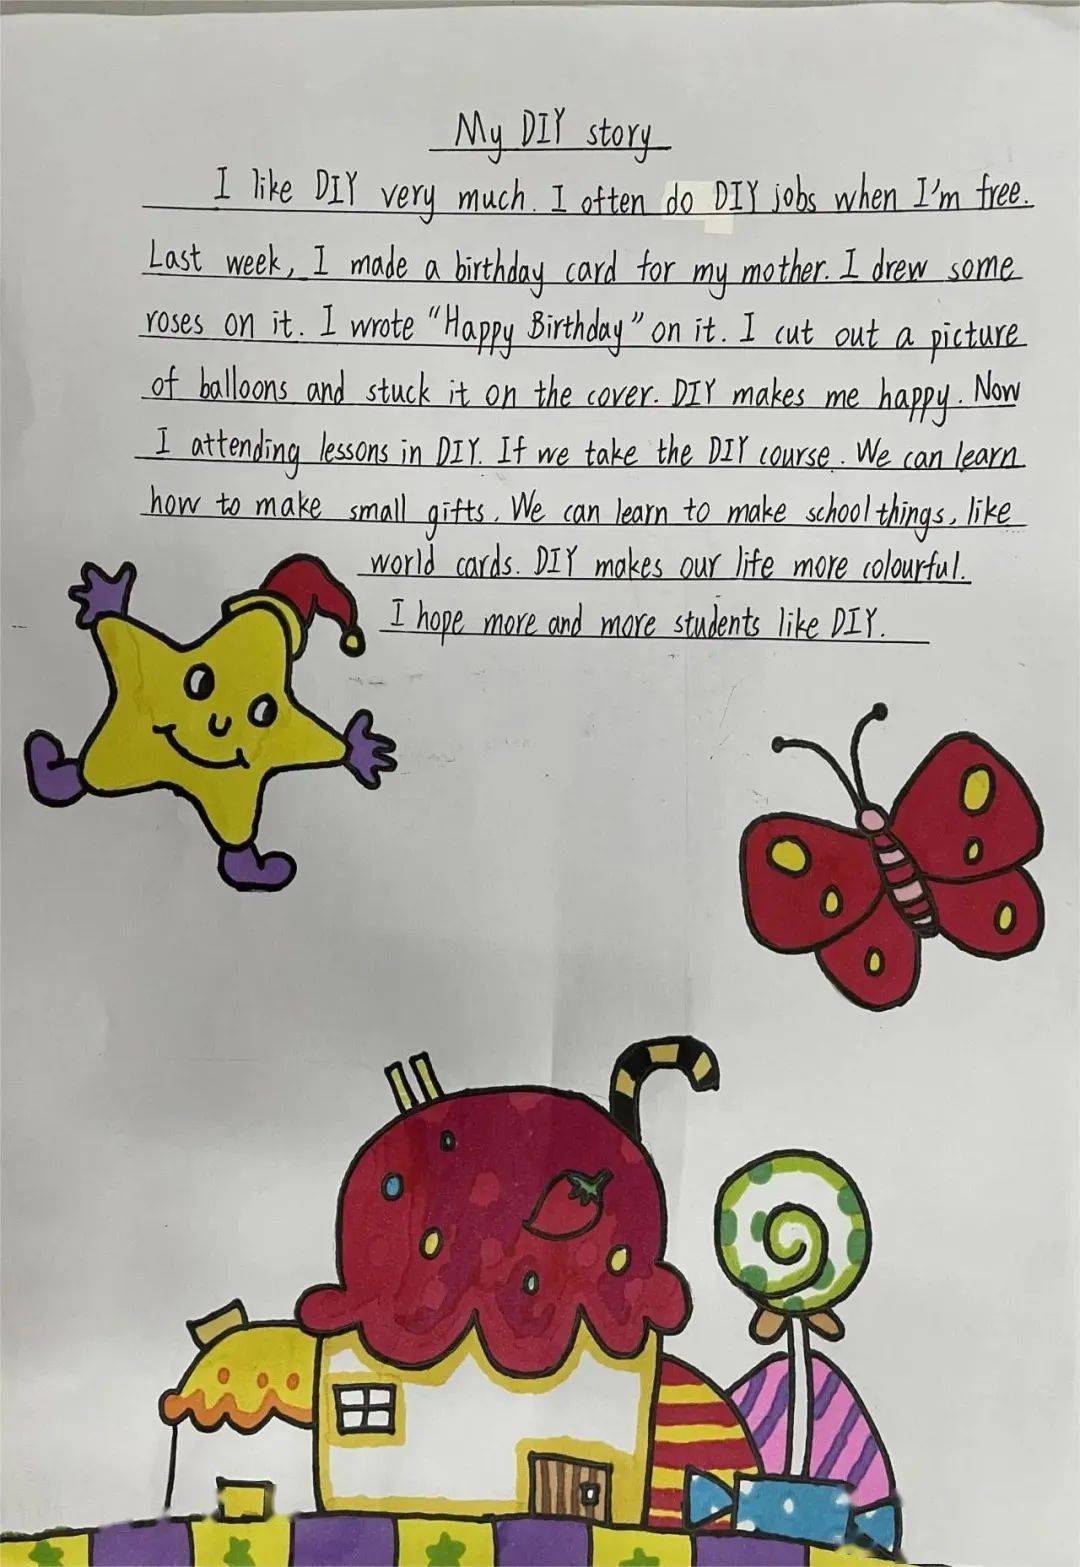 My DIY story
I like DIY very much. I often do DIY jobs when I'm free.
Last week, I made a birthday card for my mother. I drew some
roses on it. I wrote "Happy Birthday" on it. I cut out a picture
of balloons and stuck it on the cover. DIY makes me happy. Now
I attending lessons in DIY. If we take the DIY course. We can learn
how to make small gifts. We can learn to make school things, like
world cards. DIY makes our life more colourful.
I hope more and more students like DIY.